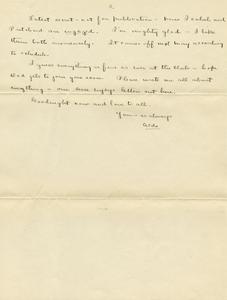 2.
Latest secret - not for publication - Anne Isabel and
Pritchard are engaged. I'm mighty glad - I like
them both immensely. It comes off next May according
to schedule.
I guess everything is fine as ever at the Club - hope
Dad gets to join you soon. Please write me all about
everything - one sure enjoys letters out here.
Goodnight now and love to all.
Yours as always
Aldo